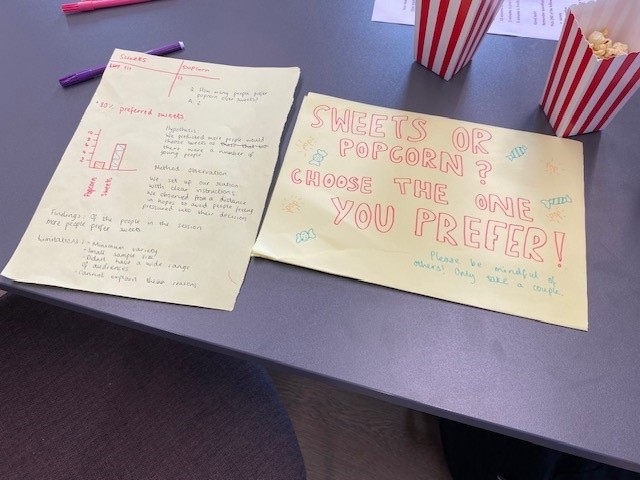 SWEETS
POPCORN
Q. How many people prefer
popcorn over sweets
A: 2
80% preferred sweets
Hypothesis:
We predicted more people would
choose sweets as
there were a number of
young people
Method: Observation
We set up our station
with clear instructions.
We observed from a distance
in hopes to avoid people feeling
pressured into their decision.
Popcorn
Sweets
Findings: Of the people in the session
more people prefer sweets
Limitations: - Minimum variety
- Small sample size
- Didn't have a wide range
of audiences
- Cannot explain these reasons
SWEETS OR
POPCORN?
CHOOSE THE ONE
YOU PREFER!
Please be mindful of
others! Only take a couple.